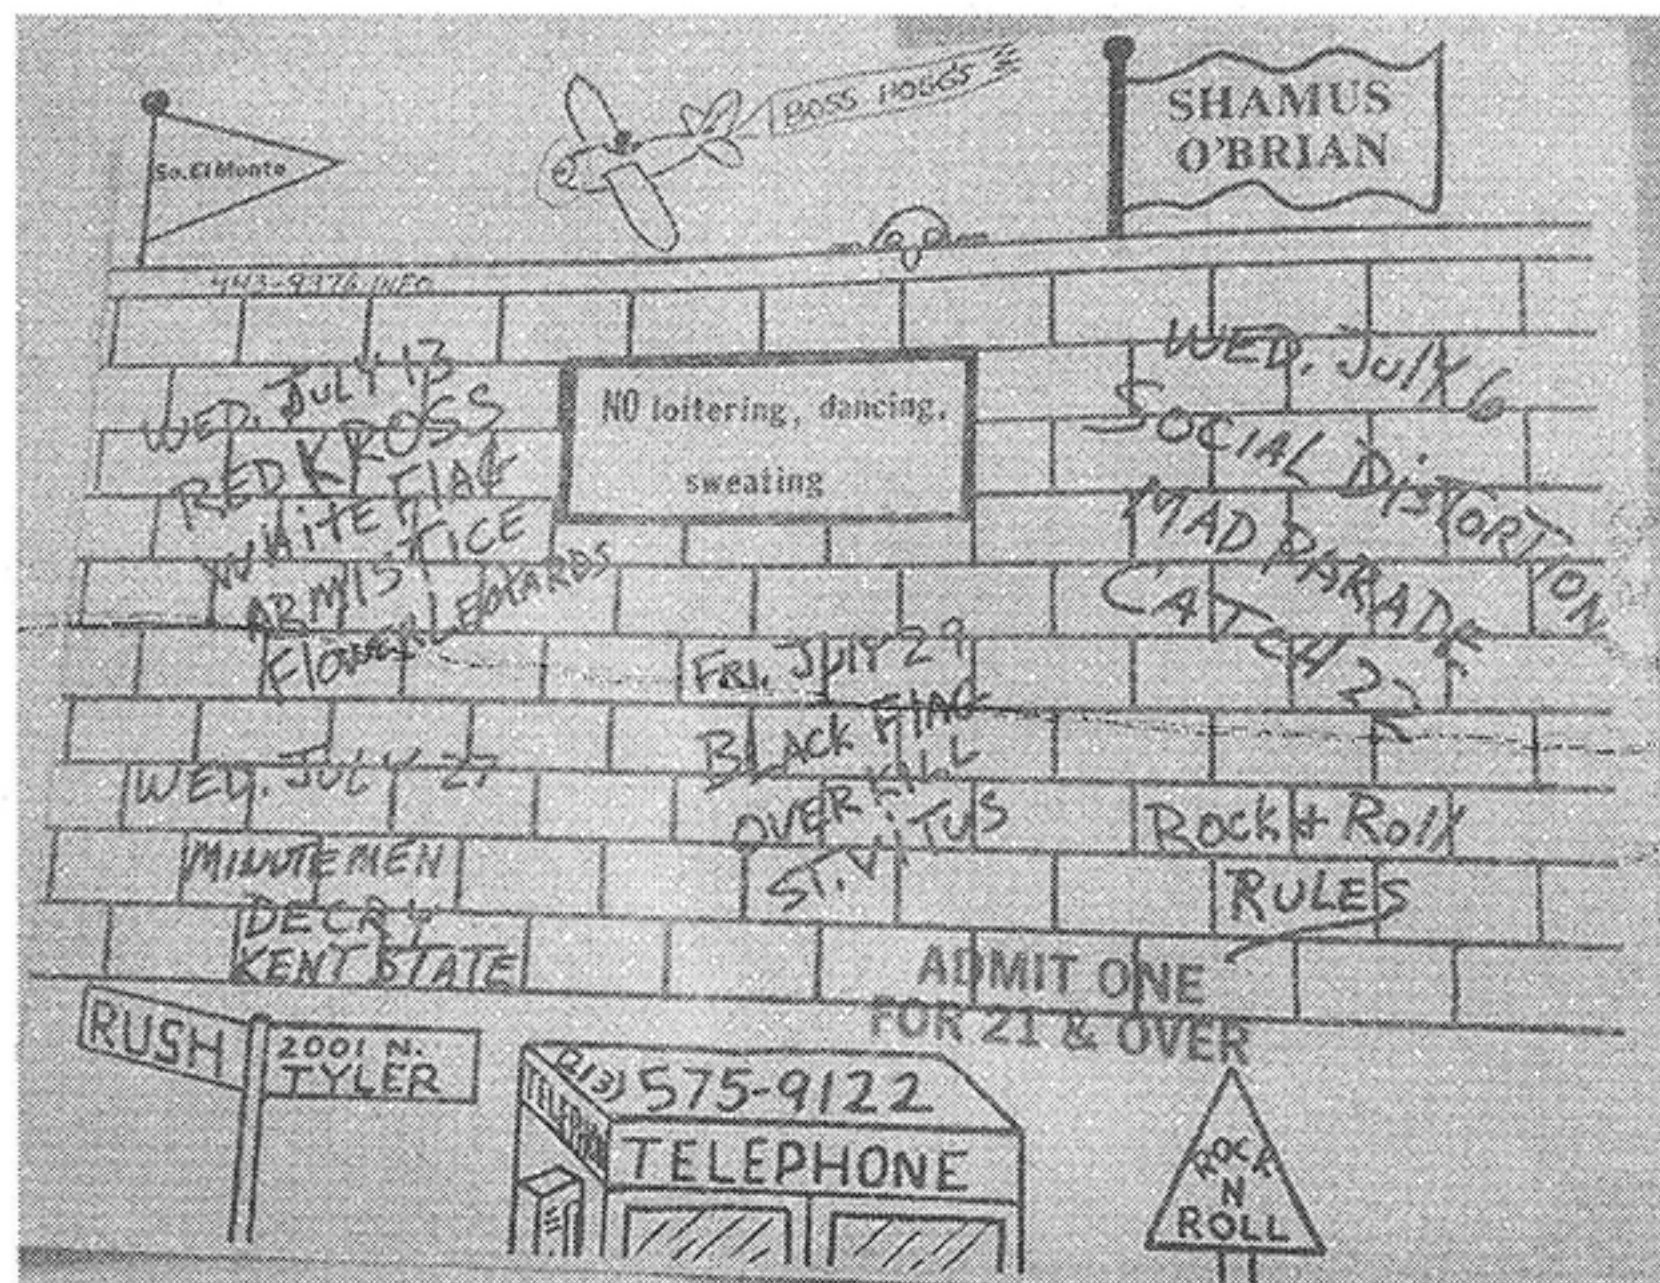 So. El Monte
BOSS HOGG'S
SHAMUS
O'BRIAN
443-9976 INFO
WED. JULY 13
RED KROSS
WHITE FLAG
ARMISTICE
FLOWER LEOTARDS
NO loitering, dancing,
sweating
WED. JULY 6
SOCIAL DISTORTION
MAD PARADE
CATCH 22
FRI. JULY 29
BLACK FLAG
OVERKILL
ST. VITUS
WED. JULY 27
MINUTEMEN
DECRY
KENT STATE
ROCK + ROLL
RULES
ADMIT ONE
FOR 21 & OVER
RUSH
2001 N.
TYLER
(213) 575-9122
TELEPHONE
TELEPHONE
ROCK
N
ROLL